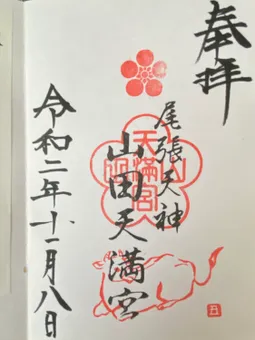 奉拝
尾張天神
山田天満宮
令和二年十一月八日
天満宮
山
丑